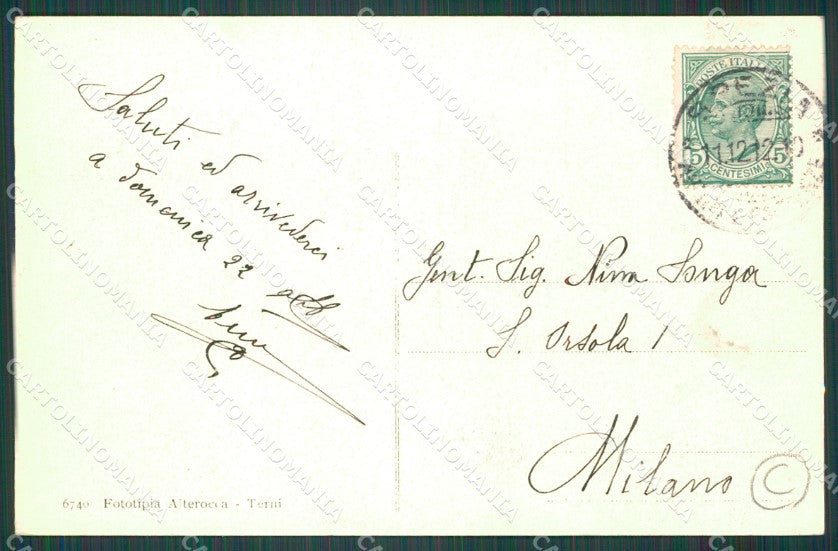 Saluti ed arrivederci
a domenica 22
POSTE ITALIANE
5 5
CENTESIMI
SPEZIA
11.12.12
Gent. Sig. Nina
S. Orsola 1
Milano
C
6740 Fototipia Alterocca - Terni
CARTOLINOMANIA